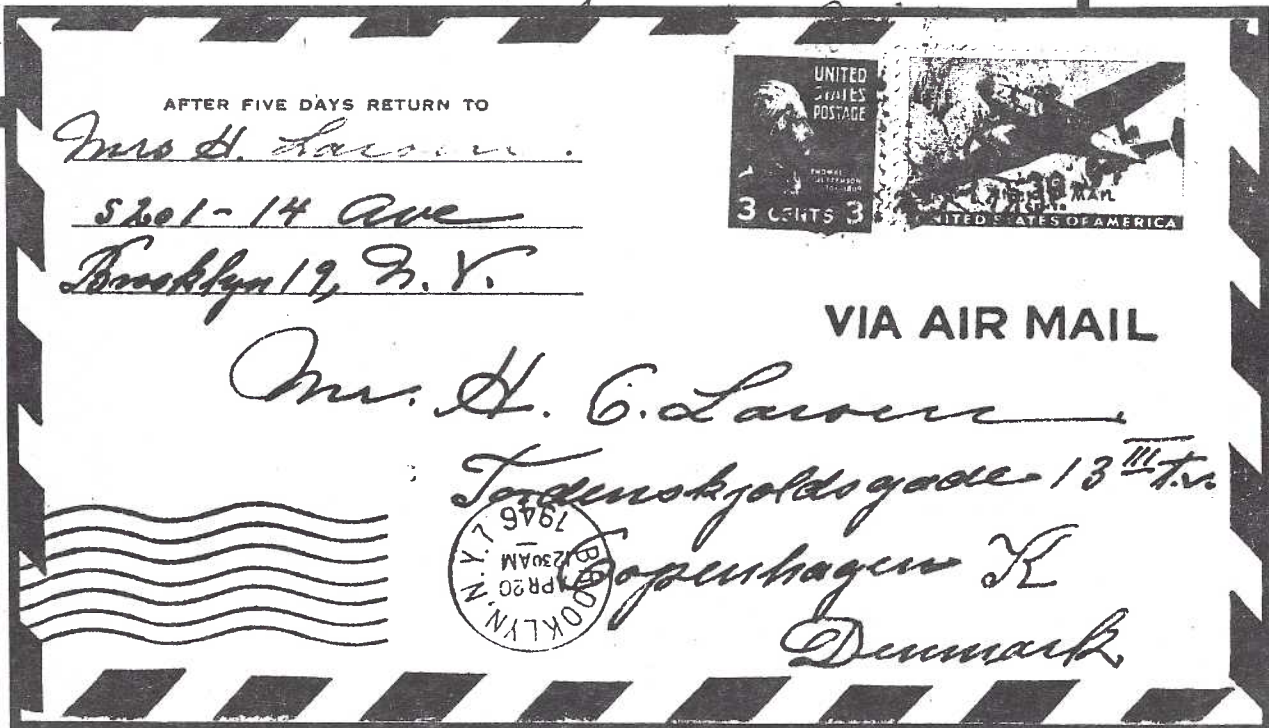 AFTER FIVE DAYS RETURN TO
Mrs H. Larsen.
5201-14 Ave
Brooklyn 19, N.Y.
UNITED
STATES
POSTAGE
THOMAS
JEFFERSON
3 CENTS 3
AIR MAIL
UNITED STATES OF AMERICA
VIA AIR MAIL
Mr. H. C. Larsen
Tordenskjoldsgade 13 III t.v.
Copenhagen K
Denmark
BROOKLYN, N.Y.
APR 20
1230 AM
1946